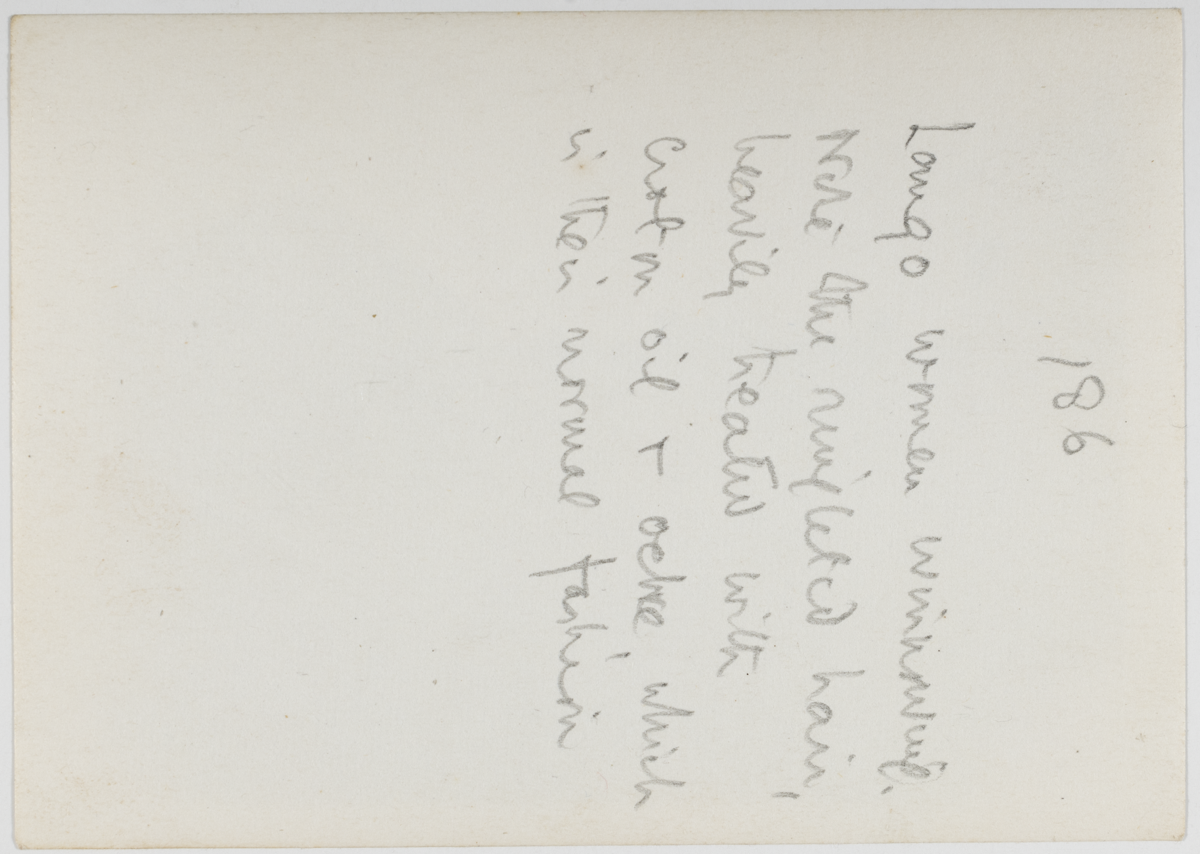 186
Lango women winnowing.
Note the ringleted hair,
heavily treated with
Croton oil + ochre which
is their normal fashion